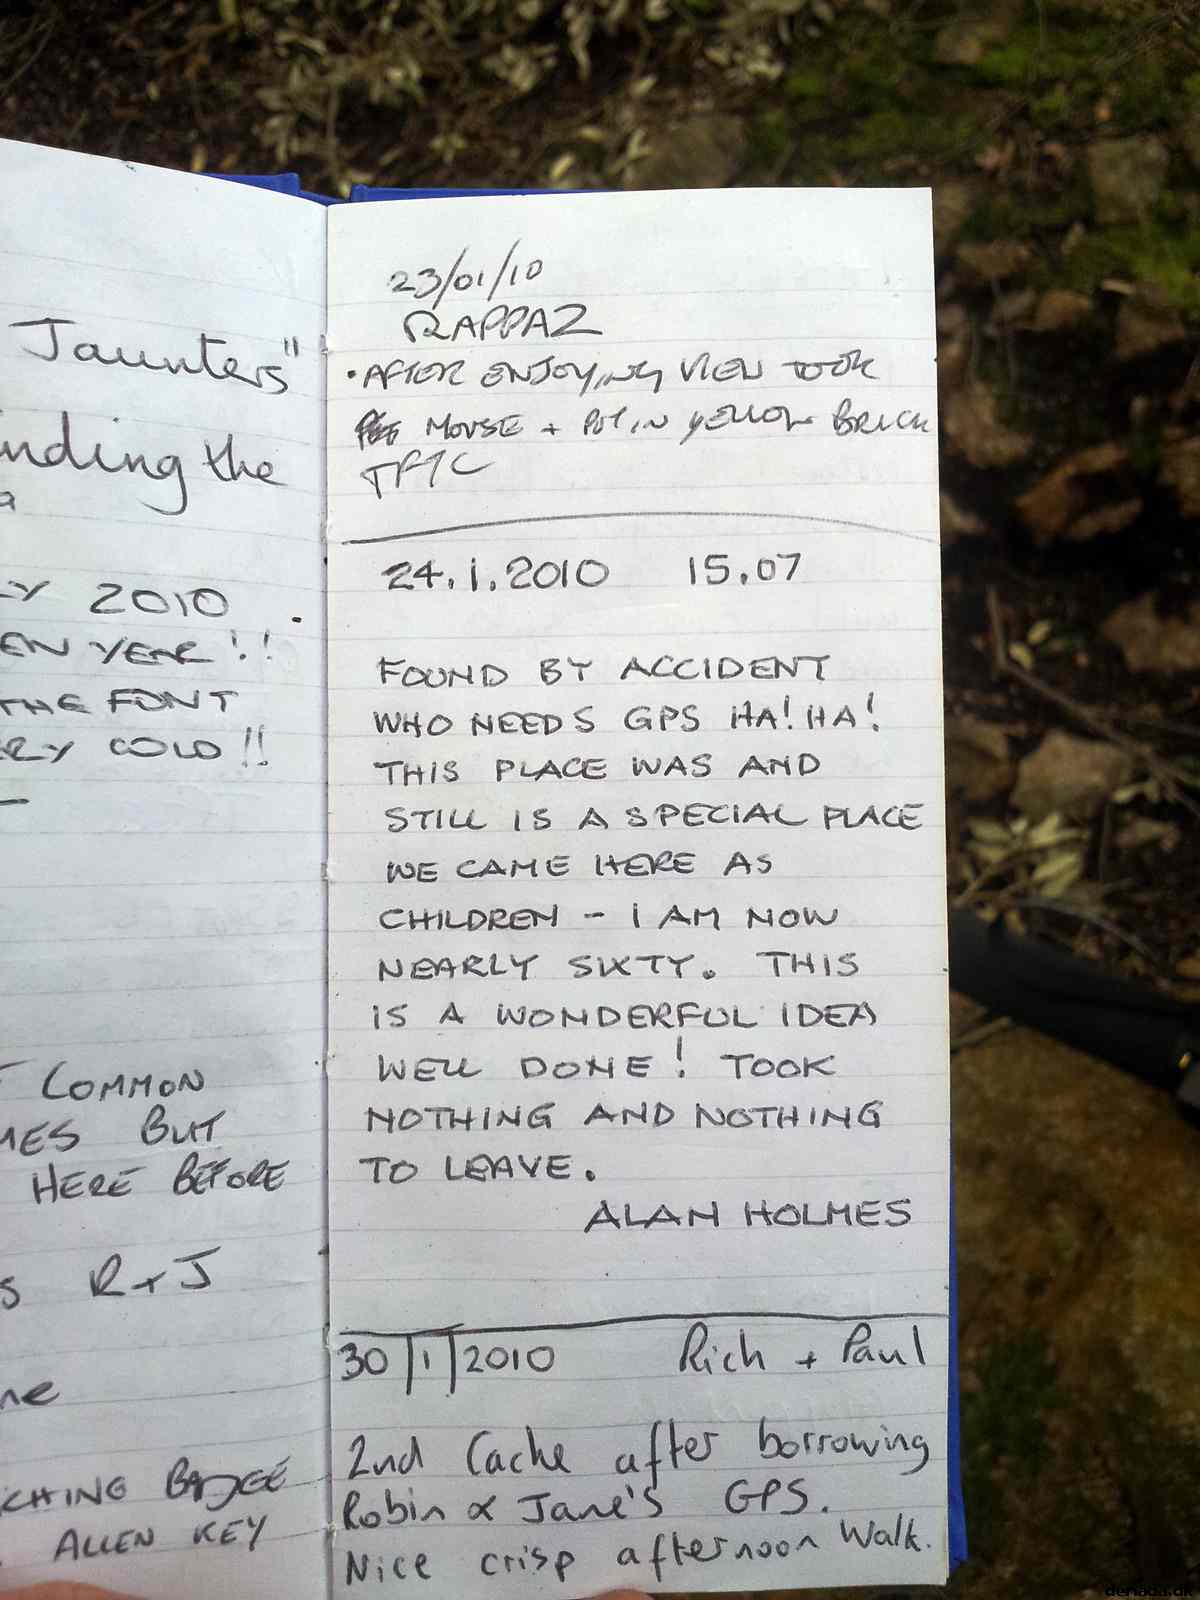 Jaunters"
nding the
Y 2010
EN YEAR!!
THE FONT
RY COLD!!
COMMON
MES BUT
HERE BEFORE
S R+J
ne
CHING BADGE
ALLEN KEY
23/01/10
RAPPAZ
• AFTER ENJOYING VIEW TOOK
MOUSE + PUT IN YELLOW BRICK
TFTC
24.1.2010 15.07
FOUND BY ACCIDENT
WHO NEEDS GPS HA! HA!
THIS PLACE WAS AND
STILL IS A SPECIAL PLACE
WE CAME HERE AS
CHILDREN - I AM NOW
NEARLY SIXTY. THIS
IS A WONDERFUL IDEA
WELL DONE! TOOK
NOTHING AND NOTHING
TO LEAVE.
ALAN HOLMES
30/1/2010 Rich + Paul
2nd Cache after borrowing
Robin & Jane's GPS.
Nice crisp afternoon walk.